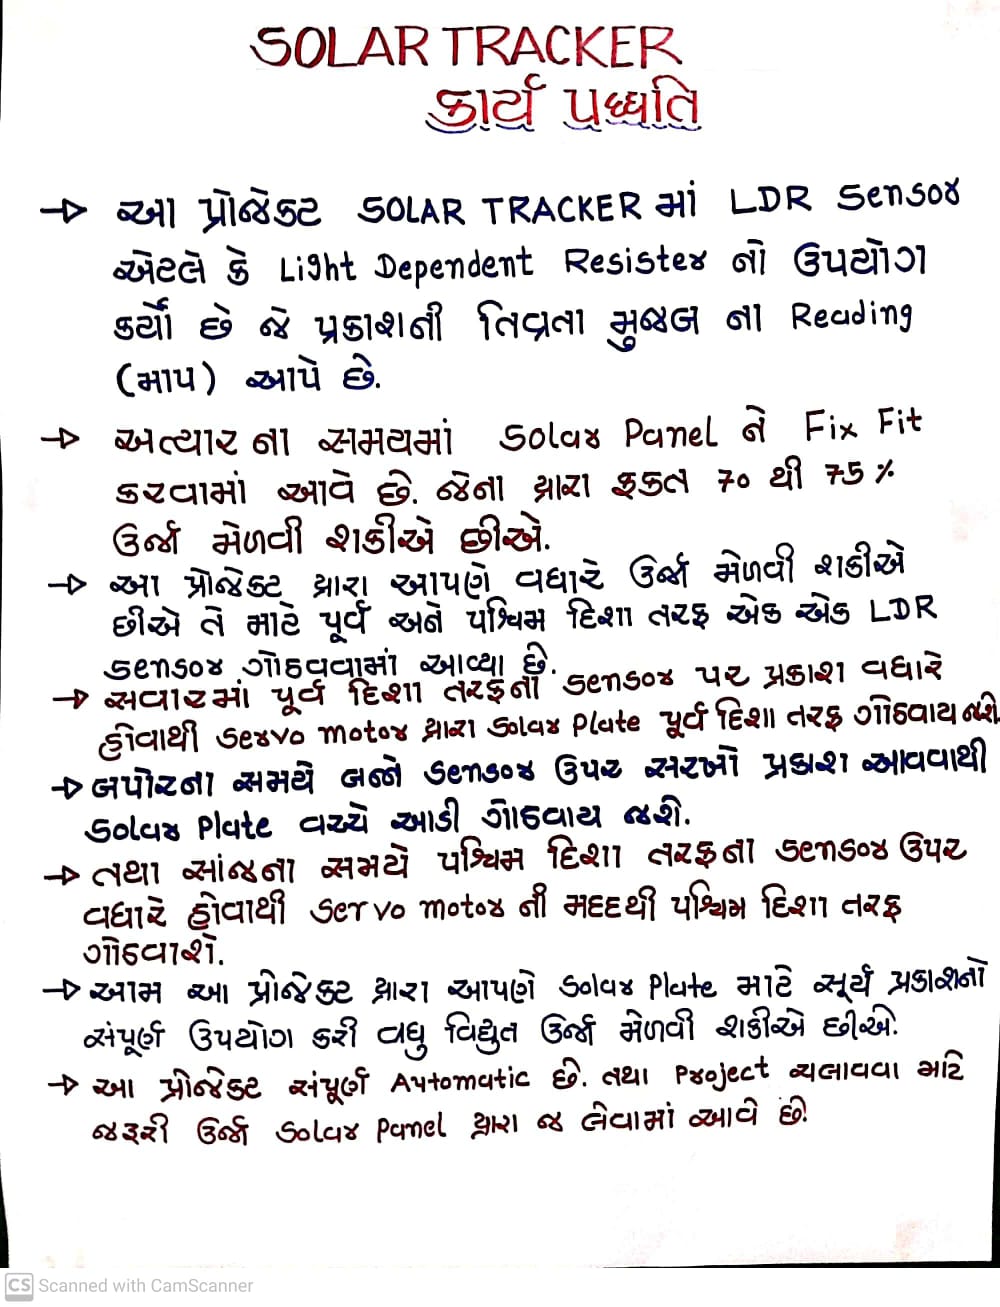 SOLAR TRACKER
કાર્ય પધ્ધતિ
→ આ પ્રોજેક્ટ SOLAR TRACKER માં LDR Sensor
એટલે કે Light Dependent Resister નો ઉપયોગ
કર્યો છે જે પ્રકાશની તિવ્રતા મુજબ ના Reading
(માપ) આપે છે.
→ અત્યાર ના સમયમાં Solar Panel ને Fix Fit
કરવામાં આવે છે. જેના દ્રારા ફકત 70 થી 75 %
ઉર્જા મેળવી શકીએ છીએ.
→ આ પ્રોજેક્ટ દ્રારા આપણે વધારે ઉર્જા મેળવી શકીએ
છીએ તે માટે પૂર્વ અને પશ્ચિમ દિશા તરફ એક એક LDR
Sensor ગોઠવવામાં આવ્યા છે.
→ સવારમાં પૂર્વ દિશા તરફના Sensor પર પ્રકાશ વધારે
હોવાથી Servo Motor દ્રારા Solar Plate પૂર્વ દિશા તરફ ગોઠવાય જશે.
→ બપોરના સમયે બન્ને Sensor ઉપર સરખો પ્રકાશ આવવાથી
Solar Plate વચ્ચે આડી ગોઠવાય જશે.
→ તથા સાંજના સમયે પશ્ચિમ દિશા તરફના Sensor ઉપર
વધારે હોવાથી Servo Motor ની મદદથી પશ્ચિમ દિશા તરફ
ગોઠવાશે.
→ આમ આ પ્રોજેક્ટ દ્રારા આપણે Solar Plate માટે સૂર્ય પ્રકાશનો
સંપૂર્ણ ઉપયોગ કરી વધુ વિદ્યુત ઉર્જા મેળવી શકીએ છીએ.
→ આ પ્રોજેક્ટ સંપૂર્ણ Automatic છે. તથા Project ચલાવવા માટે
જરૂરી ઉર્જા Solar Panel દ્રારા જ લેવામાં આવે છે.
CS Scanned with CamScanner